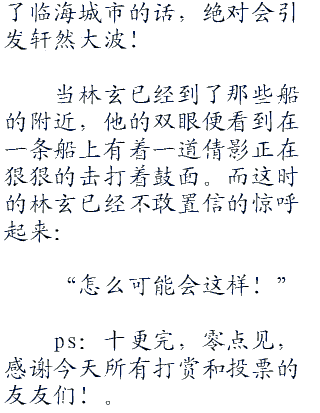 了临海城市的话，绝对会引
发轩然大波！
当林玄已经到了那些船
的附近，他的双眼便看到在
一条船上有着一道倩影正在
狠狠的击打着鼓面。而这时
的林玄已经不敢置信的惊呼
起来：
“怎么可能会这样！”
ps：十更完，零点见，
感谢今天所有打赏和投票的
友友们！。